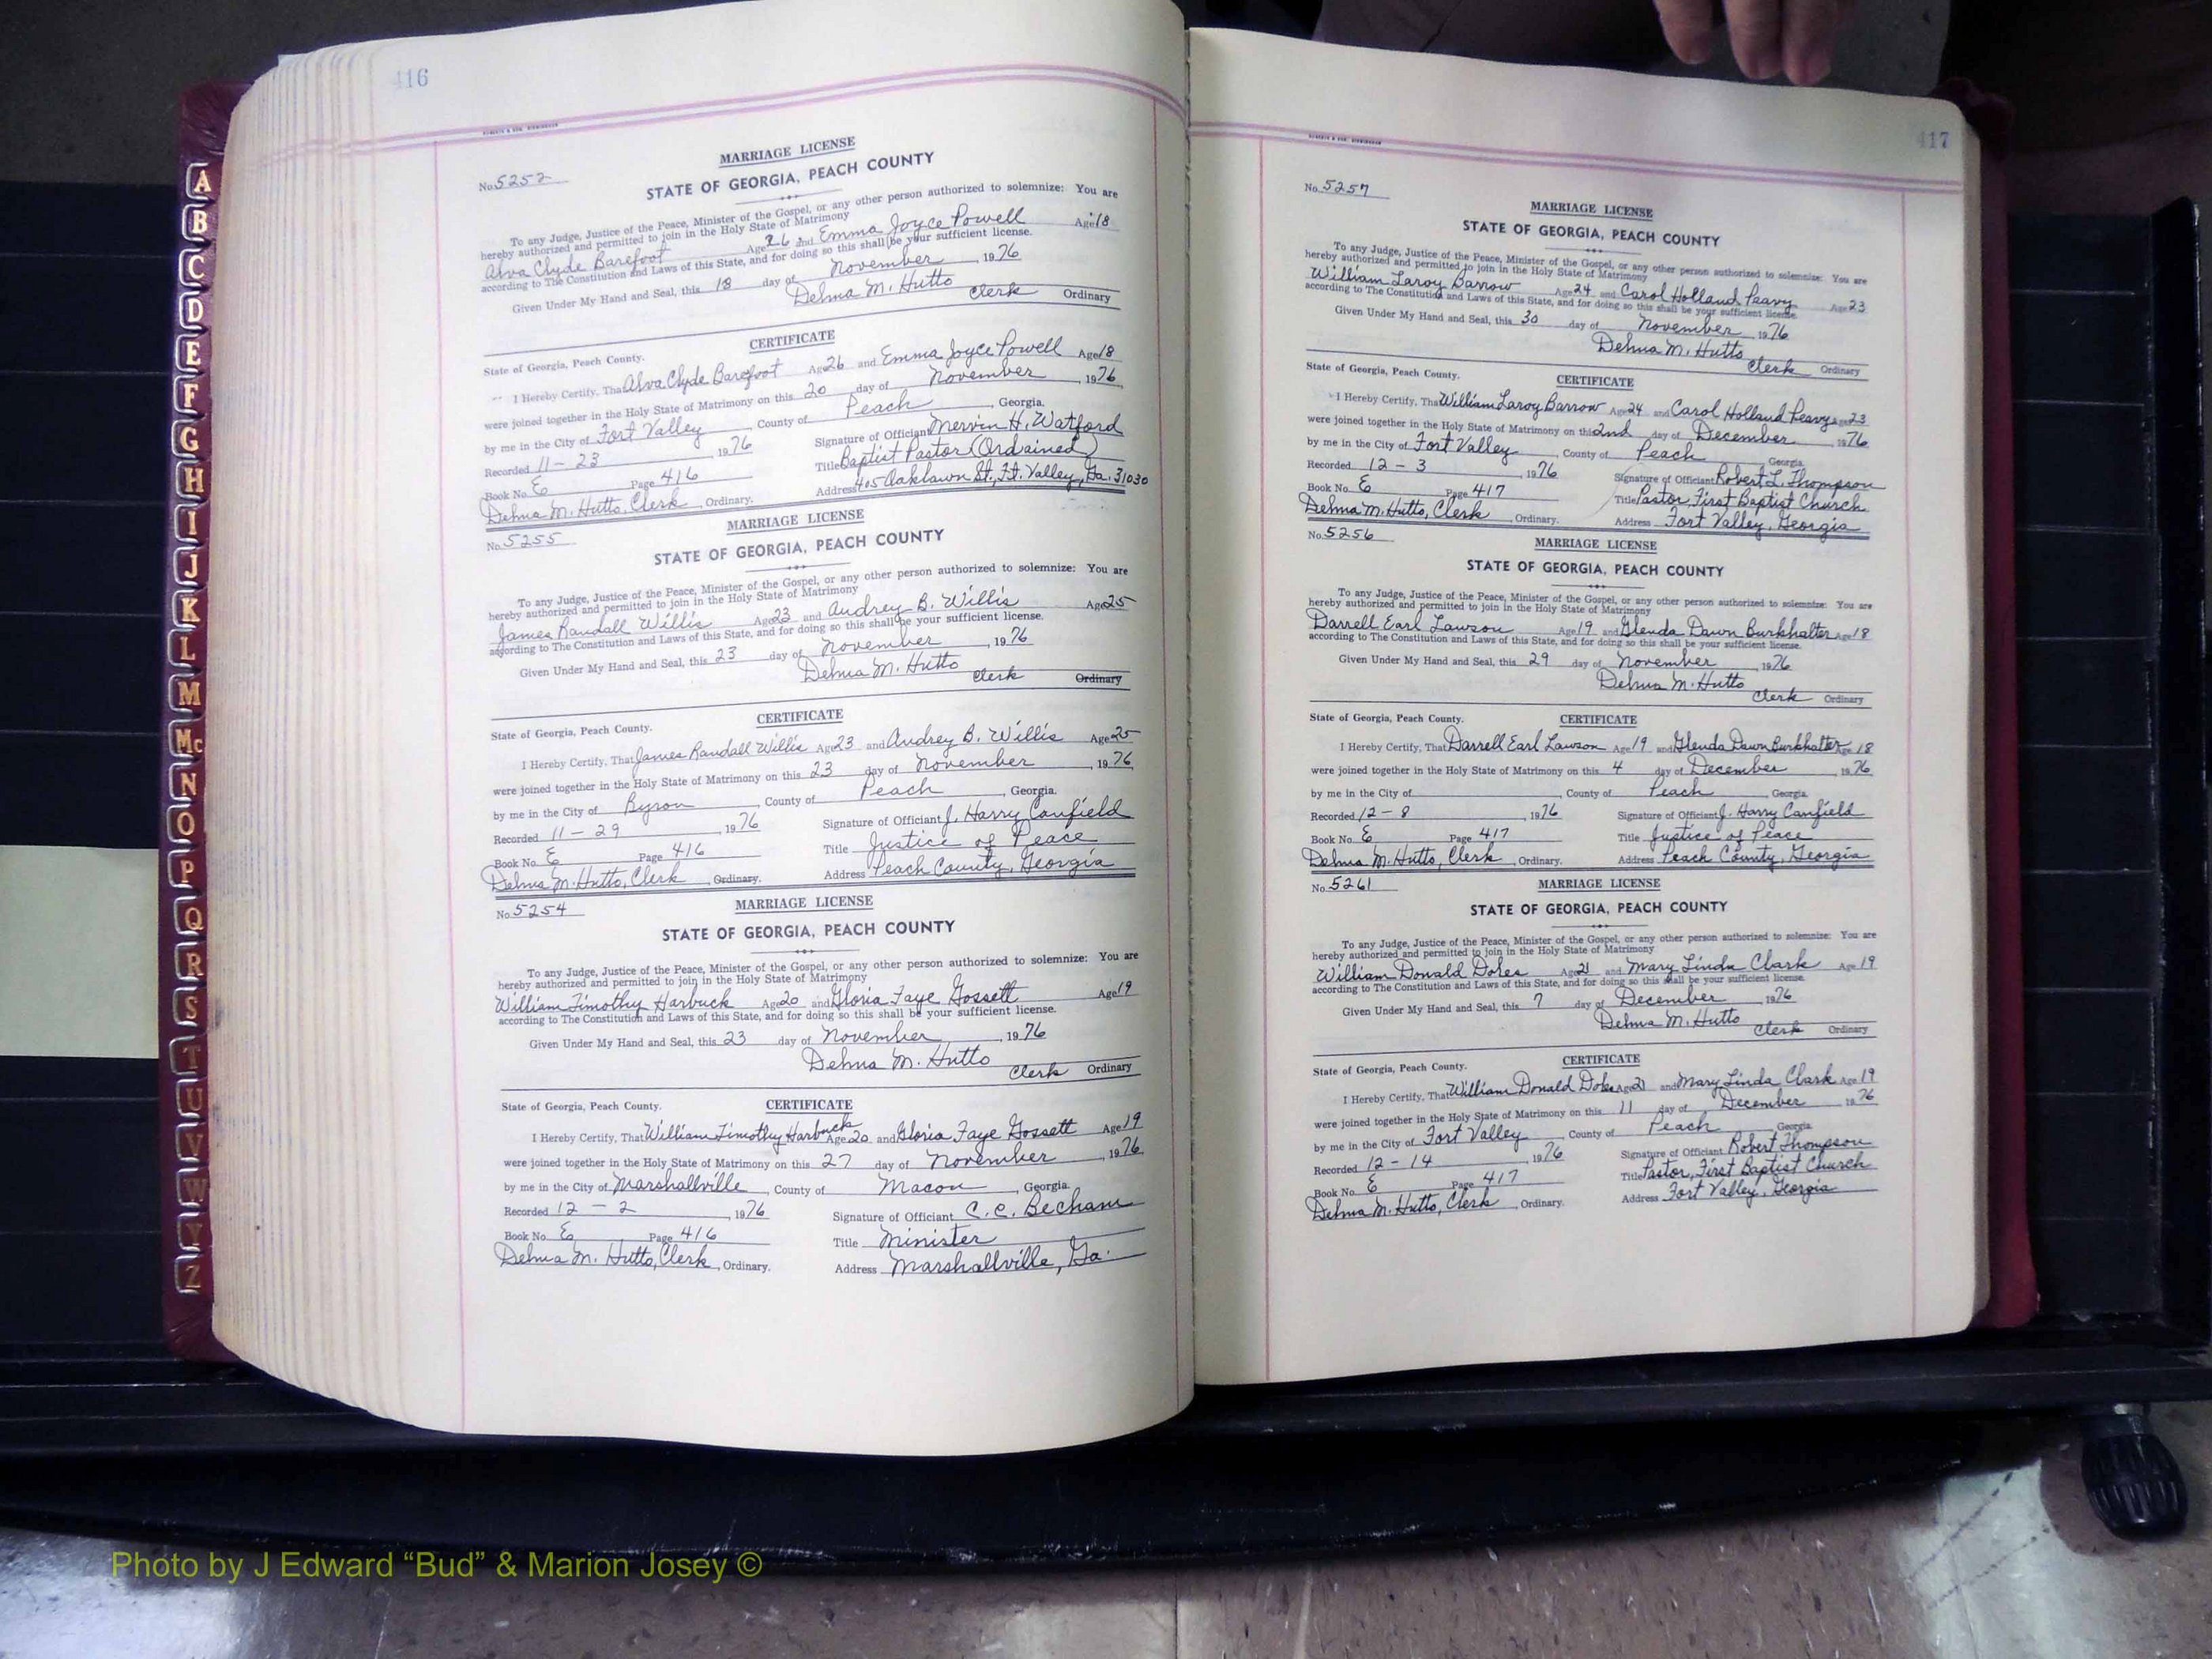 416
ROBERTS & SON, BIRMINGHAM
MARRIAGE LICENSE
No. 5252
STATE OF GEORGIA, PEACH COUNTY
To any Judge, Justice of the Peace, Minister of the Gospel, or any other person authorized to solemnize: You are
hereby authorized and permitted to join in the Holy State of Matrimony
Alva Clyde Barefoot Age 26 and Emma Joyce Powell Age 18
according to The Constitution and Laws of this State, and for doing so this shall be your sufficient license.
Given Under My Hand and Seal, this 18 day of November, 1976
Delma M. Hutto
Clerk Ordinary
CERTIFICATE
State of Georgia, Peach County.
I Hereby Certify, That Alva Clyde Barefoot Age 26 and Emma Joyce Powell Age 18
were joined together in the Holy State of Matrimony on this 20 day of November, 1976
by me in the City of Fort Valley, County of Peach, Georgia.
Recorded 11-23, 1976 Signature of Officiant Mervin H. Watford
Book No. E Page 416 Title Baptist Pastor (Ordained)
Delma M. Hutto, Clerk, Ordinary. Address 405 Oaklawn St., Ft. Valley, Ga. 31030
MARRIAGE LICENSE
No. 5255
STATE OF GEORGIA, PEACH COUNTY
To any Judge, Justice of the Peace, Minister of the Gospel, or any other person authorized to solemnize: You are
hereby authorized and permitted to join in the Holy State of Matrimony
James Randall Willis Age 23 and Audrey B. Willis Age 25
according to The Constitution and Laws of this State, and for doing so this shall be your sufficient license.
Given Under My Hand and Seal, this 23 day of November, 1976
Delma M. Hutto
Clerk Ordinary
CERTIFICATE
State of Georgia, Peach County.
I Hereby Certify, That James Randall Willis Age 23 and Audrey B. Willis Age 25
were joined together in the Holy State of Matrimony on this 23 day of November, 1976
by me in the City of Byron, County of Peach, Georgia.
Recorded 11-29, 1976 Signature of Officiant J. Harry Canfield
Book No. E Page 416 Title Justice of Peace
Delma M. Hutto, Clerk, Ordinary. Address Peach County, Georgia
MARRIAGE LICENSE
No. 5254
STATE OF GEORGIA, PEACH COUNTY
To any Judge, Justice of the Peace, Minister of the Gospel, or any other person authorized to solemnize: You are
hereby authorized and permitted to join in the Holy State of Matrimony
William Timothy Harbuck Age 20 and Gloria Faye Gossett Age 19
according to The Constitution and Laws of this State, and for doing so this shall be your sufficient license.
Given Under My Hand and Seal, this 23 day of November, 1976
Delma M. Hutto
Clerk Ordinary
CERTIFICATE
State of Georgia, Peach County.
I Hereby Certify, That William Timothy Harbuck Age 20 and Gloria Faye Gossett Age 19
were joined together in the Holy State of Matrimony on this 27 day of November, 1976
by me in the City of Marshallville, County of Macon, Georgia.
Recorded 12-2, 1976 Signature of Officiant C.C. Becham
Book No. E Page 416 Title Minister
Delma M. Hutto, Clerk, Ordinary. Address Marshallville, Ga.
417
ROBERTS & SON, BIRMINGHAM
No. 5257
MARRIAGE LICENSE
STATE OF GEORGIA, PEACH COUNTY
To any Judge, Justice of the Peace, Minister of the Gospel, or any other person authorized to solemnize: You are
hereby authorized and permitted to join in the Holy State of Matrimony
William Laroy Barrow Age 24 and Carol Holland Peavy Age 23
according to The Constitution and Laws of this State, and for doing so this shall be your sufficient license.
Given Under My Hand and Seal, this 30 day of November, 1976
Delma M. Hutto
Clerk Ordinary
State of Georgia, Peach County. CERTIFICATE
I Hereby Certify, That William Laroy Barrow Age 24 and Carol Holland Peavy Age 23
were joined together in the Holy State of Matrimony on this 2nd day of December, 1976
by me in the City of Fort Valley, County of Peach, Georgia.
Recorded 12-3, 1976 Signature of Officiant Robert L. Thompson
Book No. E Page 417 Title Pastor, First Baptist Church
Delma M. Hutto, Clerk, Ordinary. Address Fort Valley, Georgia
No. 5256
MARRIAGE LICENSE
STATE OF GEORGIA, PEACH COUNTY
To any Judge, Justice of the Peace, Minister of the Gospel, or any other person authorized to solemnize: You are
hereby authorized and permitted to join in the Holy State of Matrimony
Darrell Earl Lawson Age 19 and Glenda Dawn Burkhalter Age 18
according to The Constitution and Laws of this State, and for doing so this shall be your sufficient license.
Given Under My Hand and Seal, this 29 day of November, 1976
Delma M. Hutto
Clerk Ordinary
State of Georgia, Peach County. CERTIFICATE
I Hereby Certify, That Darrell Earl Lawson Age 19 and Glenda Dawn Burkhalter Age 18
were joined together in the Holy State of Matrimony on this 4 day of December, 1976
by me in the City of , County of Peach, Georgia.
Recorded 12-8, 1976 Signature of Officiant J. Harry Canfield
Book No. E Page 417 Title Justice of Peace
Delma M. Hutto, Clerk, Ordinary. Address Peach County, Georgia
No. 5261
MARRIAGE LICENSE
STATE OF GEORGIA, PEACH COUNTY
To any Judge, Justice of the Peace, Minister of the Gospel, or any other person authorized to solemnize: You are
hereby authorized and permitted to join in the Holy State of Matrimony
William Donald Doles Age 21 and Mary Linda Clark Age 19
according to The Constitution and Laws of this State, and for doing so this shall be your sufficient license.
Given Under My Hand and Seal, this 7 day of December, 1976
Delma M. Hutto
Clerk Ordinary
CERTIFICATE
State of Georgia, Peach County.
I Hereby Certify, That William Donald Doles Age 21 and Mary Linda Clark Age 19
were joined together in the Holy State of Matrimony on this 11 day of December, 1976
by me in the City of Fort Valley, County of Peach, Georgia.
Recorded 12-14, 1976 Signature of Officiant Robert Thompson
Book No. E Page 417 Title Pastor, First Baptist Church
Delma M. Hutto, Clerk, Ordinary. Address Fort Valley, Georgia
A
B
C
D
E
F
G
H
I
J
K
L
M
Mc
N
O
P
Q
R
S
T
U
V
W
Y
Z
Photo by J Edward “Bud” & Marion Josey ©